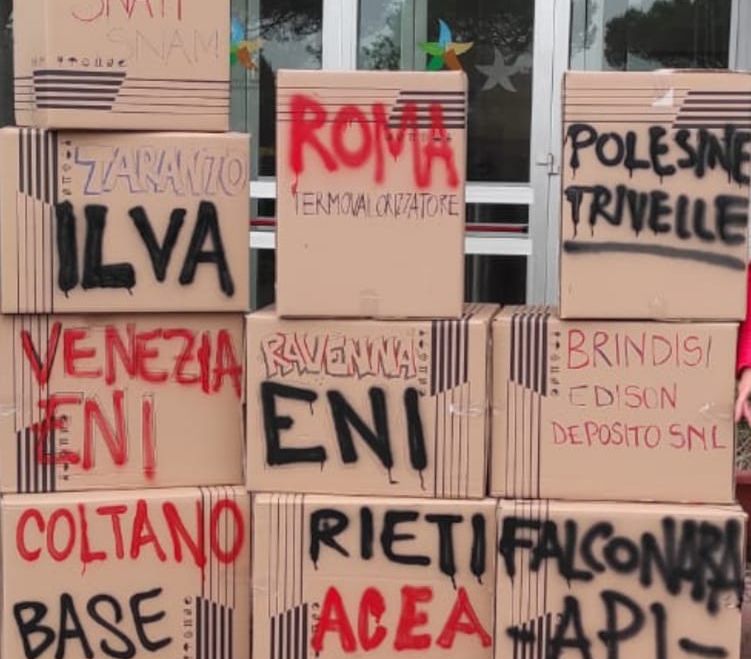 SNAM
TARANTO
ILVA
ROMA
TERMOVALORIZZATORE
POLESINE
TRIVELLE
VENEZIA
ENI
RAVENNA
ENI
BRINDISI
EDISON
DEPOSITO SNL
COLTANO
BASE
RIETI
ACEA
FALCONARA
-API-